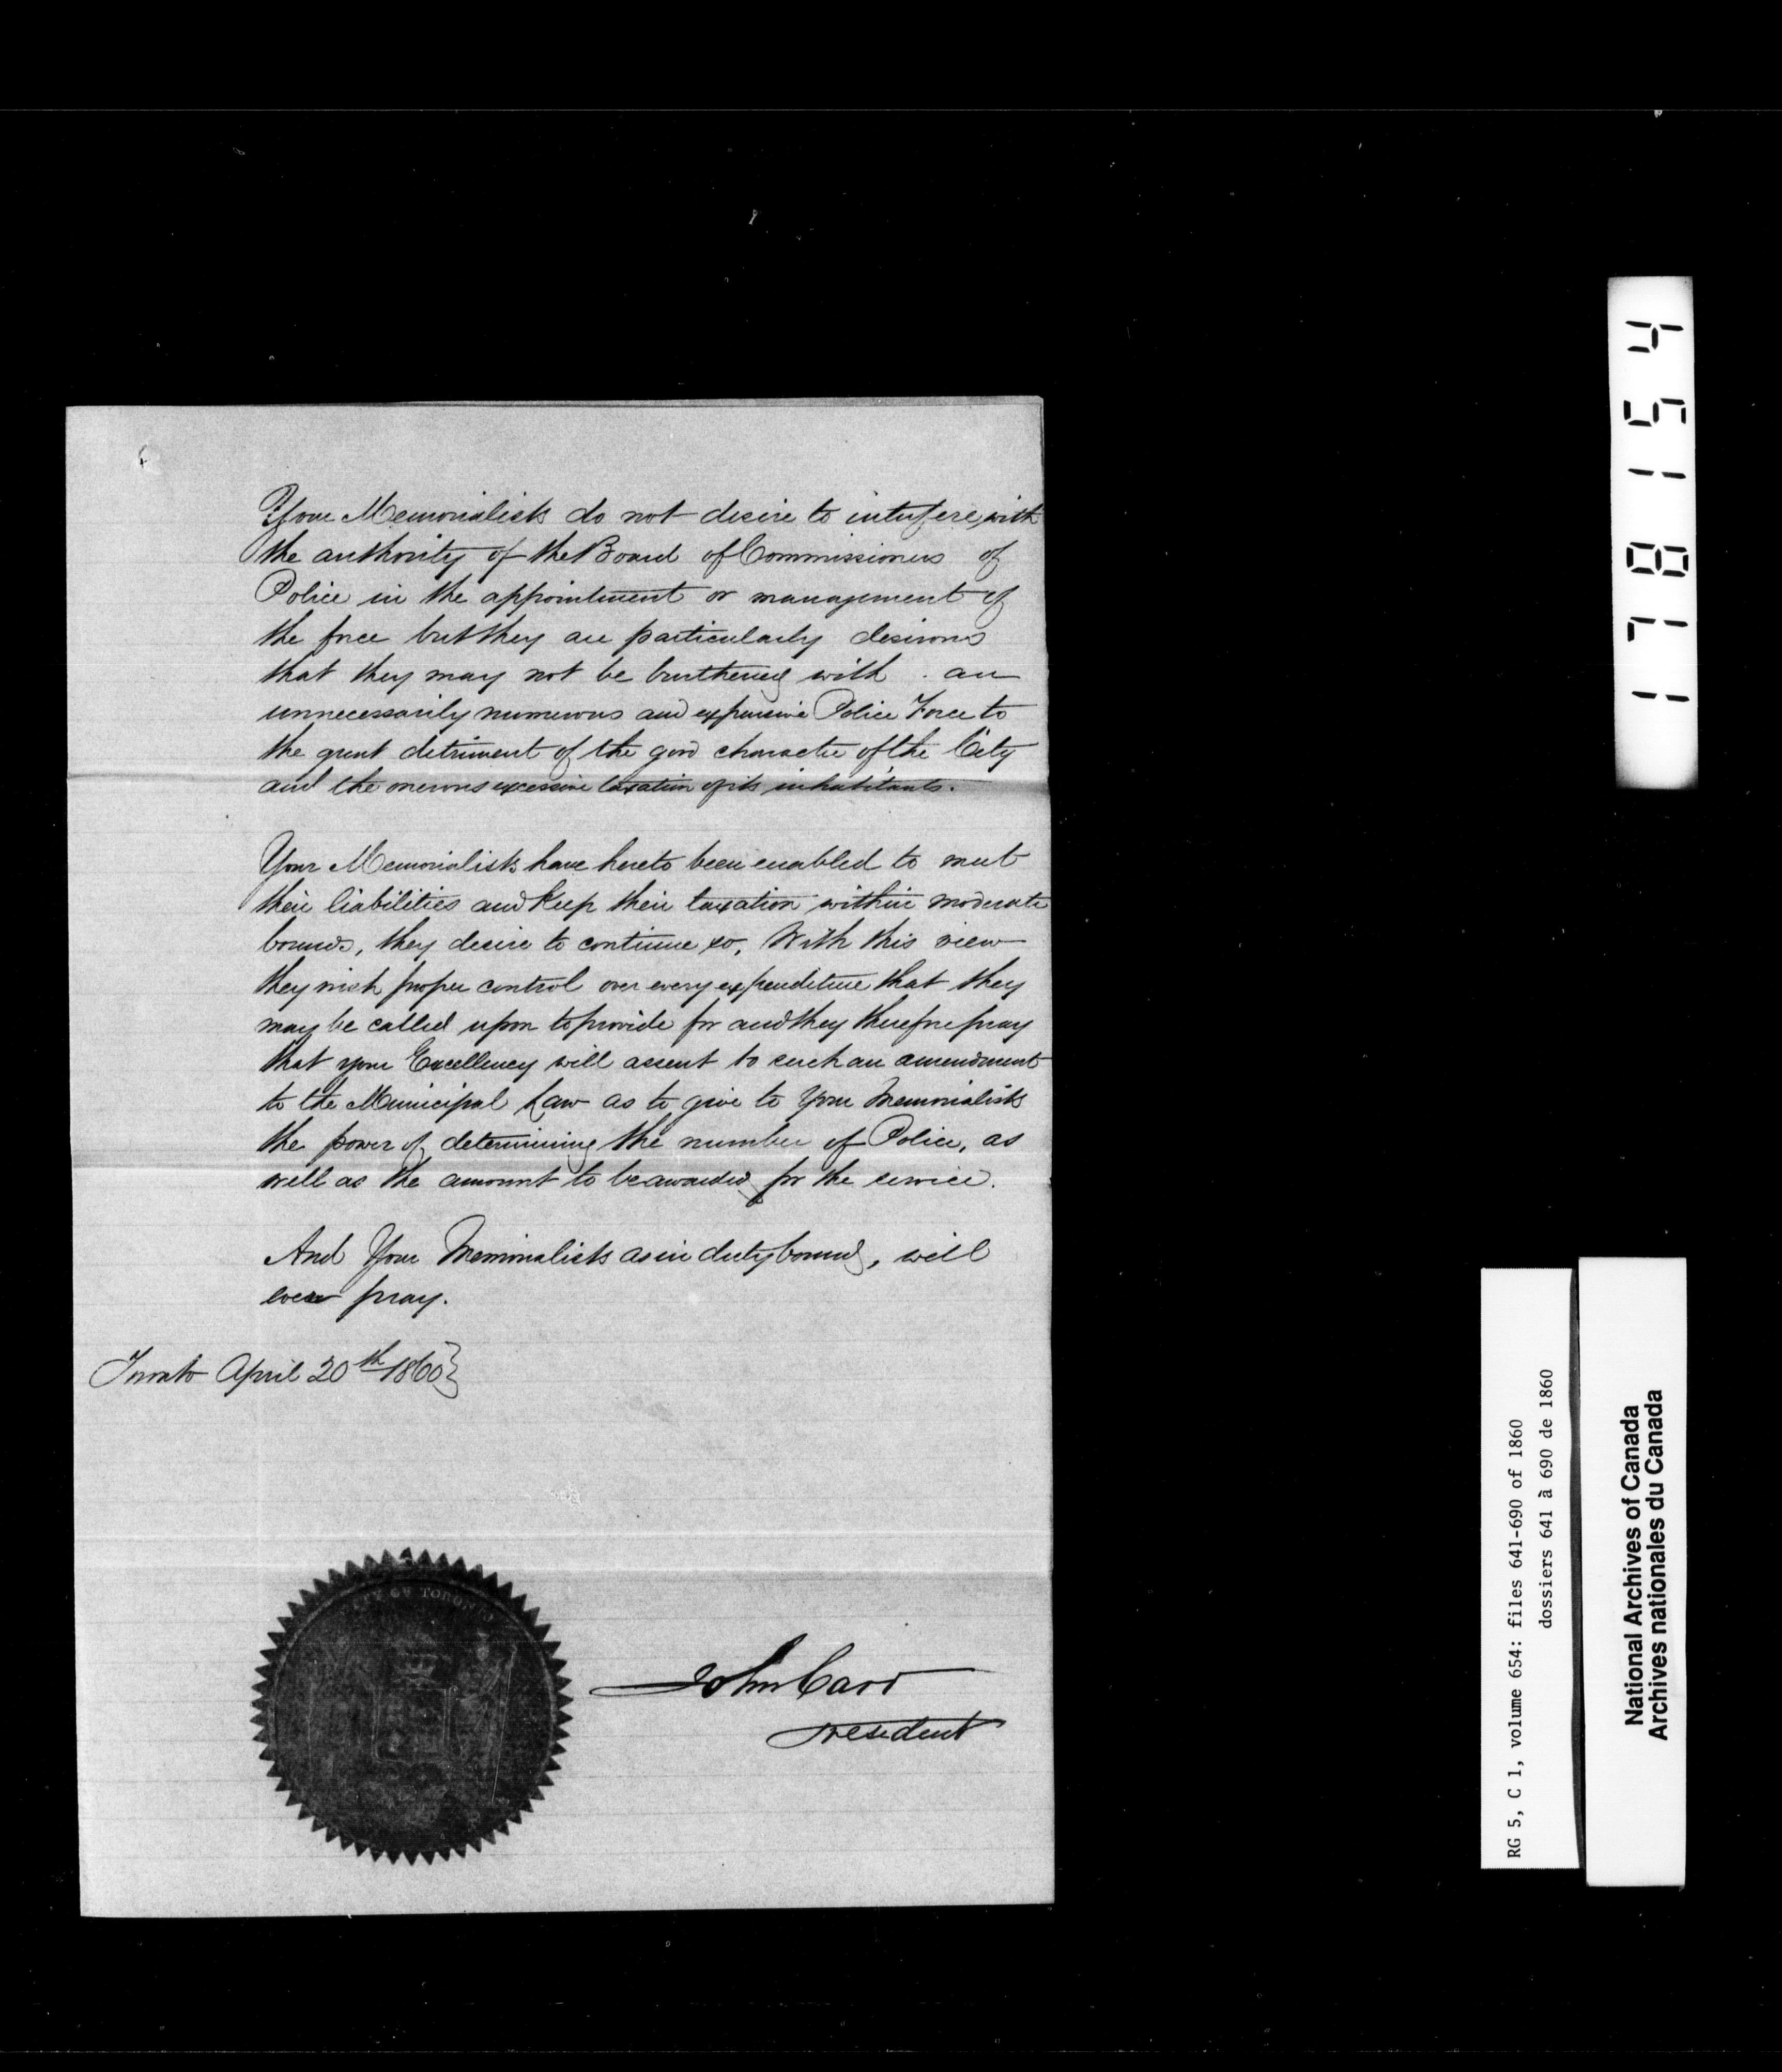 Your Memorialists do not desire to interfere with
the authority of the Board of Commissioners of
Police in the appointment or management of
the force but they are particularly desirous
that they may not be burthened with an
unnecessarily numerous and expensive Police Force to
the great detriment of the good character of the City
and the onerous excessive taxation of its inhabitants.
Your Memorialists have hereto been enabled to meet
their liabilities and keep their taxation within moderate
bounds, they desire to continue so, With this view
they wish proper control over every expenditure that they
may be called upon to provide for and they therefore pray
that your Excellency will assent to such an amendment
to the Municipal Law as to give to Your Memorialists
the power of determining the number of Police, as
well as the amount to be awarded for the service.
And Your Memorialists as in duty bound, will
ever pray.
Toronto April 20th 1860}
CITY OF TORONTO
John Carr
President
1178154
RG 5, C 1, volume 654: files 641-690 of 1860
dossiers 641 à 690 de 1860
National Archives of Canada
Archives nationales du Canada